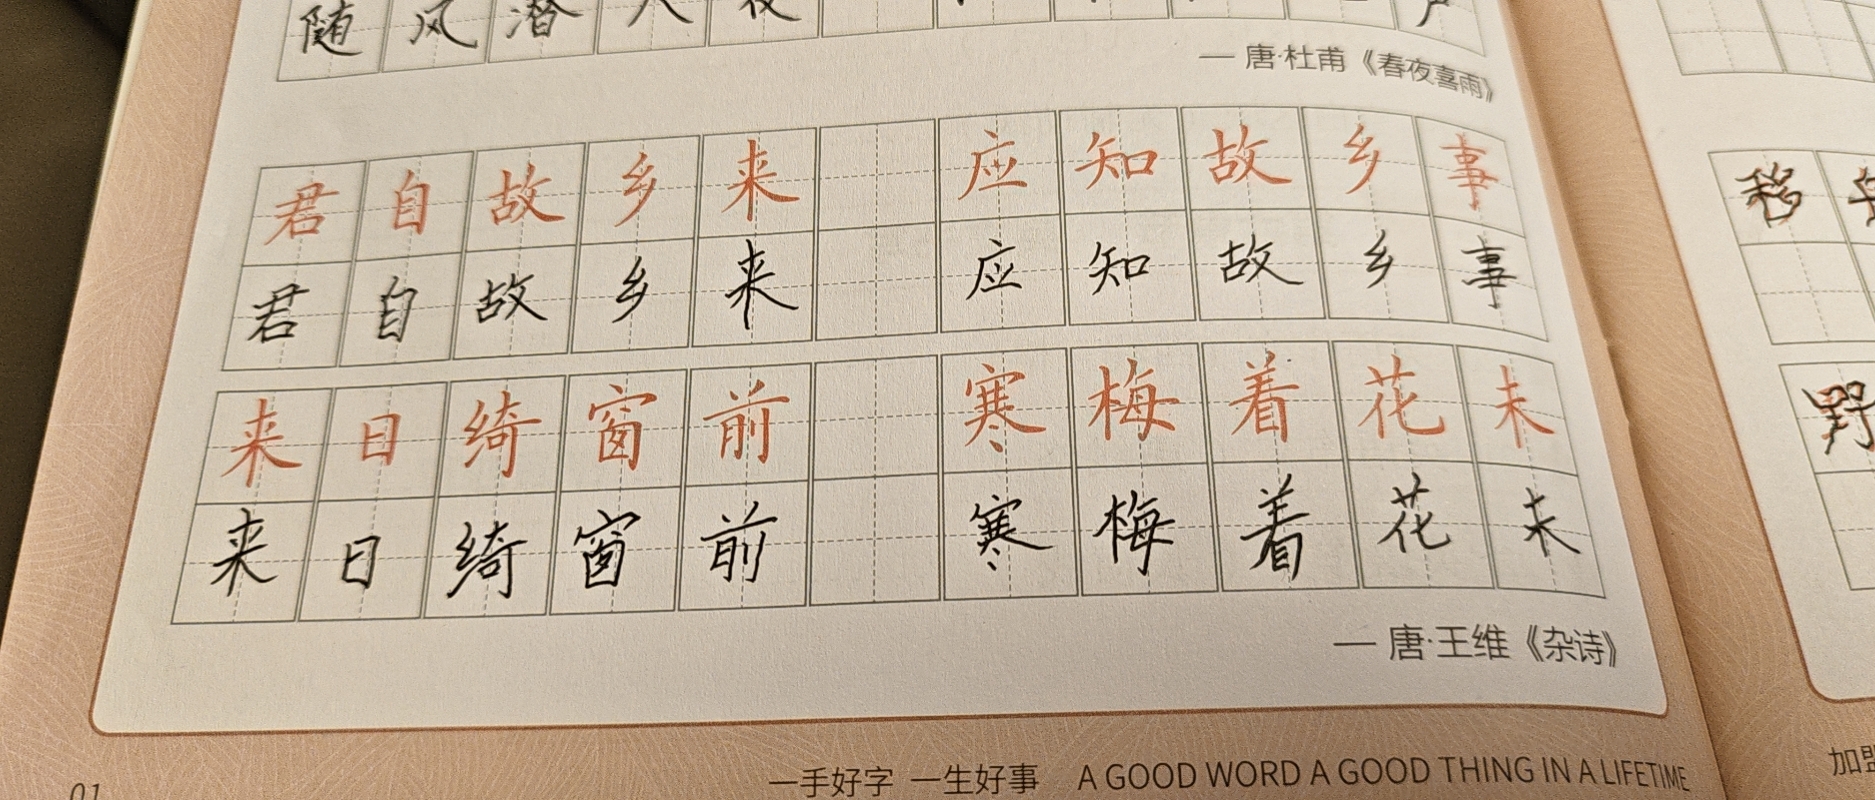 随风潜入夜
— 唐·杜甫《春夜喜雨》
君自故乡来 应知故乡事
君自故乡来 应知故乡事
来日绮窗前 寒梅着花未
来日绮窗前 寒梅着花未
— 唐·王维《杂诗》
01
一手好字 一生好事 A GOOD WORD A GOOD THING IN A LIFETIME
移
野
加盟